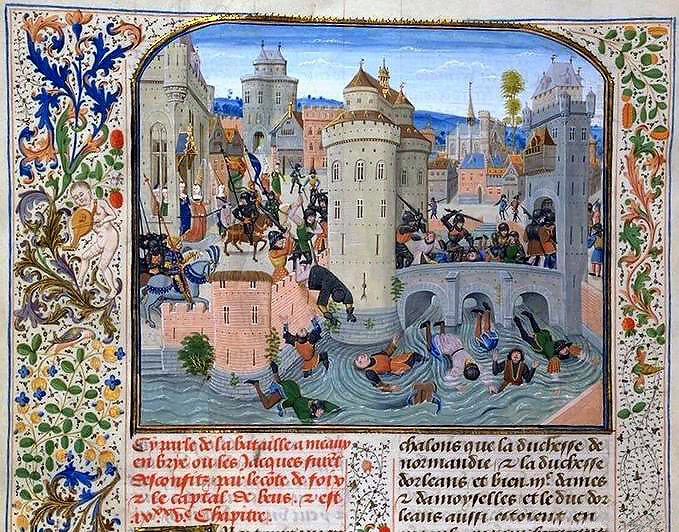 Cy parle de la bataille a meaux
en brye ou les Jacques furet
desconfits par le cote de foix
& le captal de beus, & est
Chapitre.
chalons que la duchesse de
normandie, & la duchesse
dorleans et bien, dames
& damoyselles et le duc dor
leans aussi estoient en